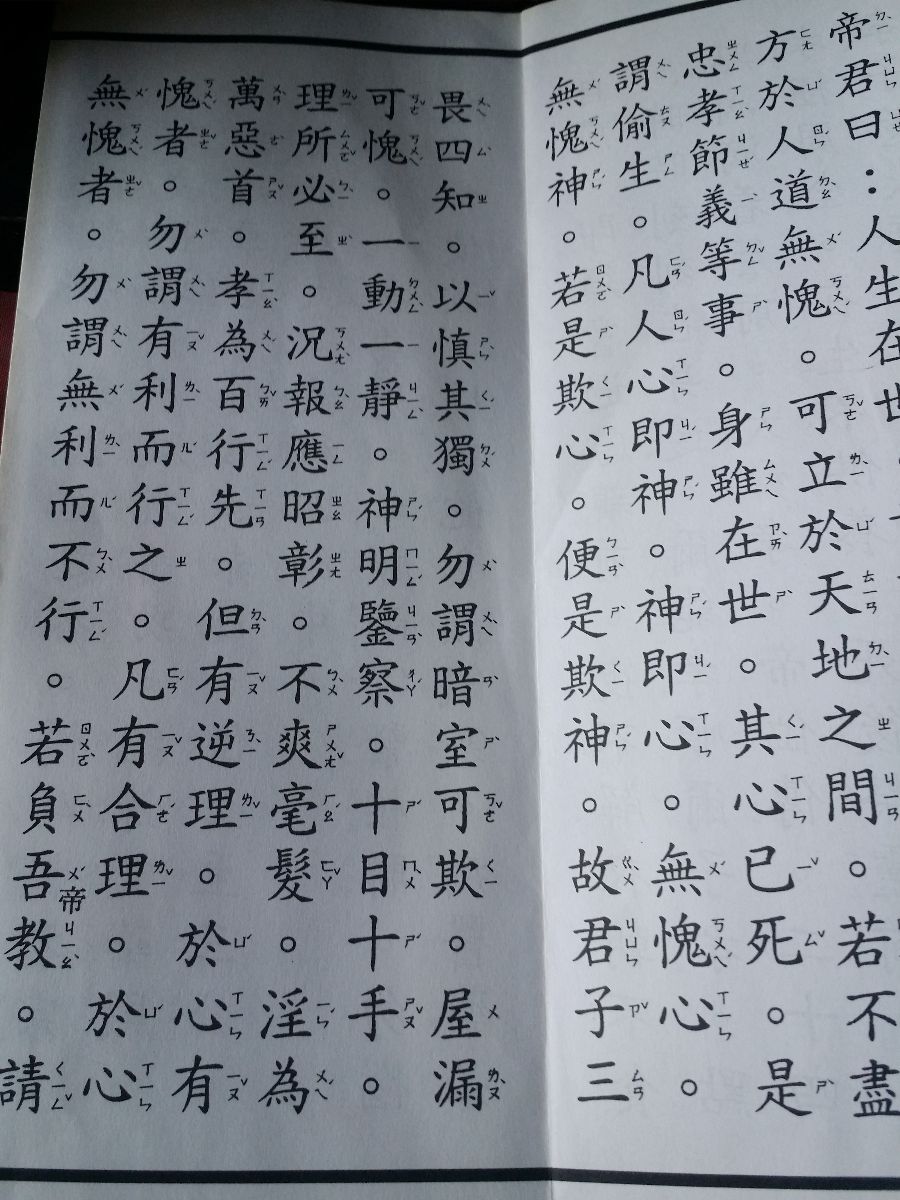 帝君曰：人生在世
方於人道無愧。可立於天地之間。若不盡
忠孝節義等事。身雖在世。其心已死。是
謂偷生。凡人心即神。神即心。無愧心。
無愧神。若是欺心。便是欺神。故君子三
畏四知。以慎其獨。勿謂暗室可欺。屋漏
可愧。一動一靜。神明鑒察。十目十手。
理所必至。況報應昭彰。不爽毫髮。淫為
萬惡首。孝為百行先。但有逆理。於心有
愧者。勿謂有利而行之。凡有合理。於心
無愧者。勿謂無利而不行。若負吾帝教。請